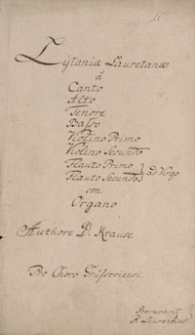 Lytaniæ Lauretanæ
á
Canto
Alto
Tenore
Basso
Violino Primo
Violino Secundo
Flauto Primo
Flauto Secundo } ad Virgo
con
Organo
Authore D. Krause
Pro Choro